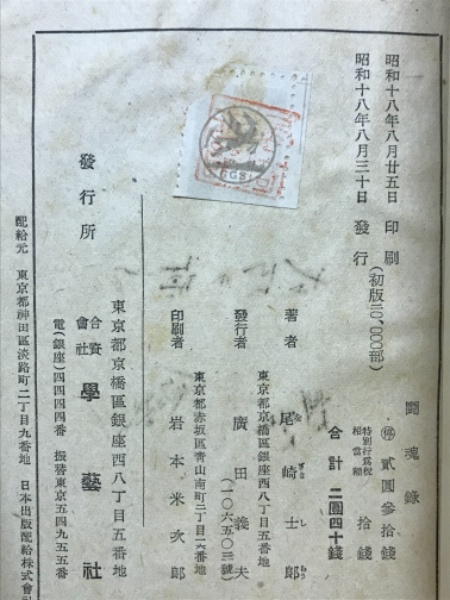 鬪魂錄
昭和十八年八月廿五日 印刷
昭和十八年八月三十日 發行
(初版二〇,〇〇〇部)
停 貳圓參拾錢
特別行爲稅相當額 拾錢
合計 二圓四十錢
著者 尾崎士郎
東京都京橋區銀座西八丁目五番地
發行者 廣田義夫
(一〇六五〇三號)
東京都赤坂區靑山南町二丁目一六番地
印刷者 岩本米次郎
東京都京橋區銀座西八丁目五番地
發行所 合資會社 學藝社
電(銀座)四四四四番 振替東京五四九五五番
配給元 東京都神田區淡路町二丁目九番地 日本出版配給株式會